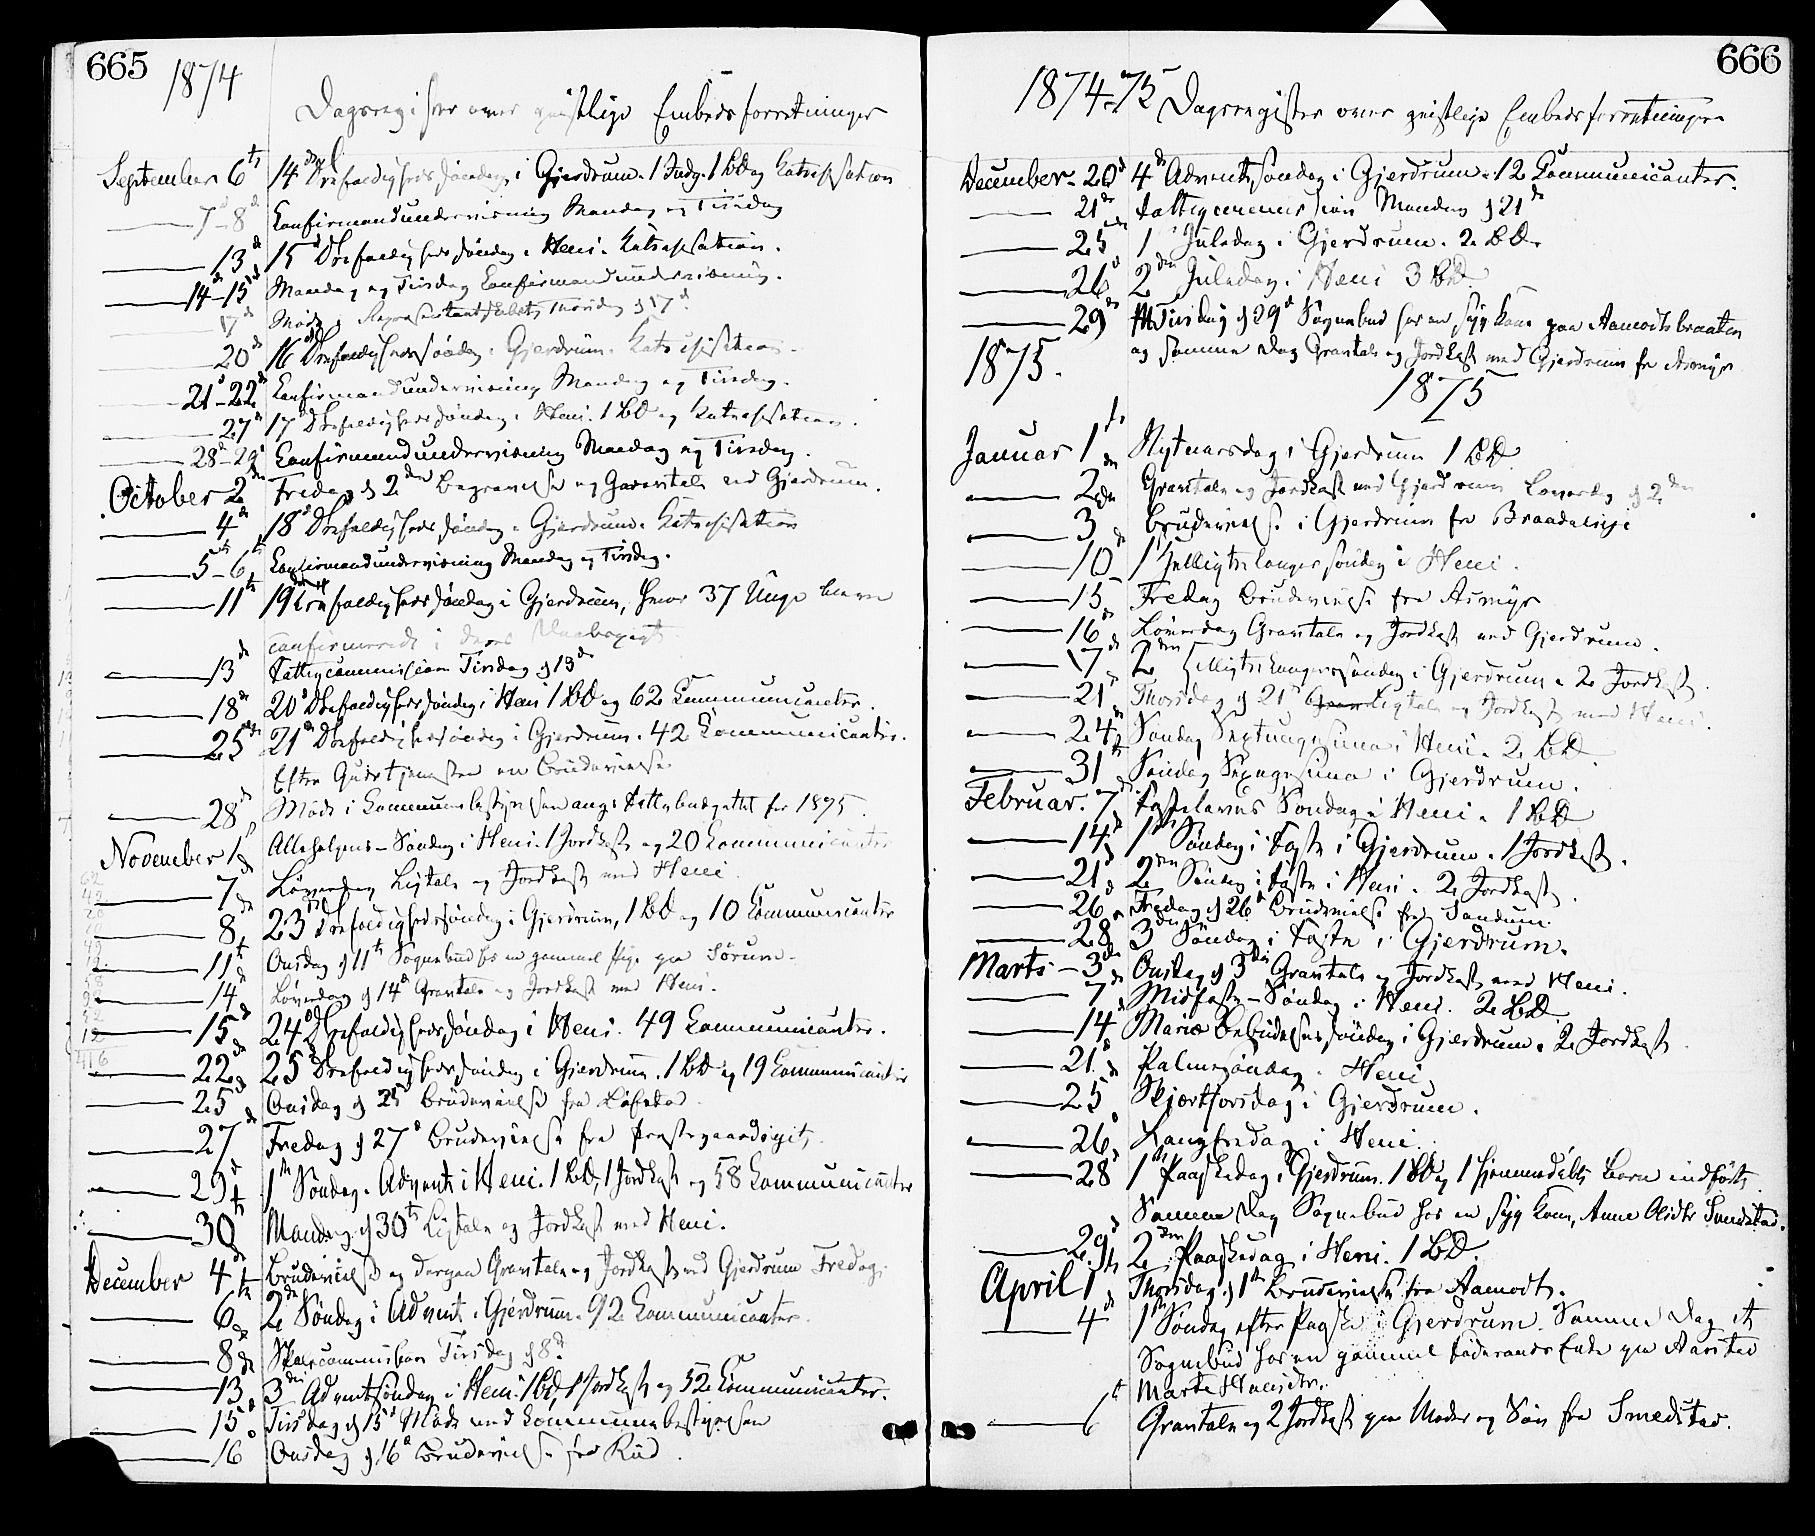 665
1874
Dagsregister over geistlige Embedsforretninger
September 6te 14de Trefoldighedssøndag i Gjerdrum. 1 Indg. 1 BD og Katechisation
7de-8de Confirmandundervisning Mandag og Tirsdag
13de 15de Trefoldighedssøndag i Heni. Katechisation.
14de-15de Mandag og Tirsdag Confirmandundervisning.
17de Møde i Repræsentantskabet, Thorsdag d 17de
20de 16de Trefoldighedssøndag i Gjerdrum. Katechisation.
21de-22de Confirmandundervisning Mandag og Tirsdag.
27de 17de Trefoldighedssøndag i Heni. 1 BD og Katechisation.
28de-29de Confirmandundervisning Mandag og Tirsdag.
October 2den Fredag d 2den Begravelse og Gravtale ved Gjerdrum.
4de 18de Trefoldighedssøndag i Gjerdrum. Katechisation
5te-6te Confirmandundervisning Mandag og Tirsdag.
11te 19de Trefoldighedssøndag i Gjerdrum, hvor 37 Unge bleve
confirmerede i deres Daabspagt.
13de Fattigcommission Tirsdag d 13de
18de 20de Trefoldighedssøndag i Heni 1 BD og 62 Communicanter.
25de 21de Trefoldighedssøndag i Gjerdrum. 42 Communicanter.
Efter Gudstjenesten en Brudevielse
28de Møde i Kommunebestyrelsen ang: Fattigbudgettet for 1875.
November 1ste Allehelgens-Søndag i Heni. 1 Jordkast og 20 Communicanter
7de Løverdag Ligtale og Jordkast ved Heni.
8de 23de Trefoldighedssøndag i Gjerdrum, 1 BD og 10 Communicanter
11te Onsdag d 11te Sognebud hos en gammel Pige paa Sørum.
14de Løverdag d 14de Gravtale og Jordkast ved Heni.
15de 24de Trefoldighedssøndag i Heni. 49 Communicanter.
22de 25de Trefoldighedssøndag i Gjerdrum. 1 BD og 19 Communicanter
25de Onsdag d 25 Brudevielse fra
27de Fredag d 27de Brudevielse fra Præstegaardseiet.
29de 1ste Søndag i Advent i Heni. 1 BD, 1 Jordkast og 58 Communicanter
30te Mandag d 30te Ligtale og Jordkast ved Heni.
December 4de Brudevielse og derpaa Gravtale og Jordkast ved Gjerdrum Fredag.
6te 2den Søndag i Advent i Gjerdrum. 92 Communicanter.
8de Skolecommission Tirsdag d 8de
13de 3die Adventssøndag i Heni. 1 BD, 1 Jordkast og 52 Communicanter.
15de Tirsdag d 15de Møde med Kommunebestyrelsen
16de Onsdag d 16de Brudevielse fra Rud.
666
1874-75 Dagsregister over geistlige Embedsforretninger
December 20de 4de Adventssøndag i Gjerdrum. 12 Communicanter.
21de Fattigcommission Mandag d 21de
25de 1ste Juledag i Gjerdrum. 2 BD.
26de 2den Juledag i Heni 3 BD.
29de Tirsdag d 29de Sognebud hos en syg Kone paa Aamodtsbraaten
og samme Dag Gravtale og Jordkast ved Gjerdrum fra Asmyr
1875. 1875
Januar 1ste Nytaarsdag i Gjerdrum 1 BD
2den Gravtale og Jordkast ved Gjerdrum Løverdag d 2den
3die Brudevielse i Gjerdrum fra
10de 1ste Helligtrekongerssøndag i Heni.
15de Fredag Brudevielse fra Asmyr
16de Løverdag Gravtale og Jordkast ved Gjerdrum.
17de 2den Helligtrekongerssøndag i Gjerdrum. 2 Jordkast.
21de Thorsdag d 21de Ligtale og Jordkast ved Heni.
24de Søndag Septuagesima i Heni. 2 BD.
31te Søndag Sexagesima i Gjerdrum.
Februar. 7de Fastelavns Søndag i Heni. 1 BD
14de 1ste Søndag i Faste i Gjerdrum. 1 Jordkast.
21de 2den Søndag i Faste i Heni. 2 Jordkast.
26de Fredag d 26de Brudevielse fra Sandum.
28de 3die Søndag i Faste i Gjerdrum.
Marts - 3die Onsdag d 3die Gravtale og Jordkast ved Heni.
7de Midfaste-Søndag i Heni. 2 BD.
14de Mariæ Bebudelsessøndag i Gjerdrum. 2 Jordkast.
21de Palmesøndag i Heni
25de Skjærthorsdag i Gjerdrum.
26de Langfredag i Heni.
28de 1ste Paaskedag i Gjerdrum. 1 BD og 1 hjemmedøbt Barn indført.
Samme Dag Sognebud hos en syg Kone, Anne Olidtr Sundstad.
29de 2den Paaskedag i Heni. 1 BD.
April 1ste Thorsdag d 1ste Brudevielse fra Aamodt.
4de 1ste Søndag efter Paaske i Gjerdrum. Samme Dag et
Sognebud hos en gammel Føderaads Enke paa
Marte Hansdtr.
6te Gravtale og 2 Jordkast paa Moder og Søn fra Smedstad.